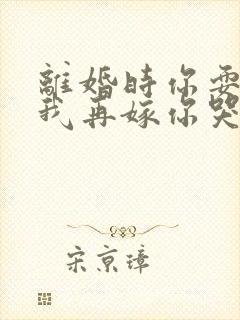 離婚時你要
我再嫁你哭
宋京璋